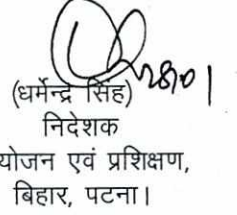 (धर्मेन्द्र सिंह)
निदेशक
योजन एवं प्रशिक्षण,
बिहार, पटना।